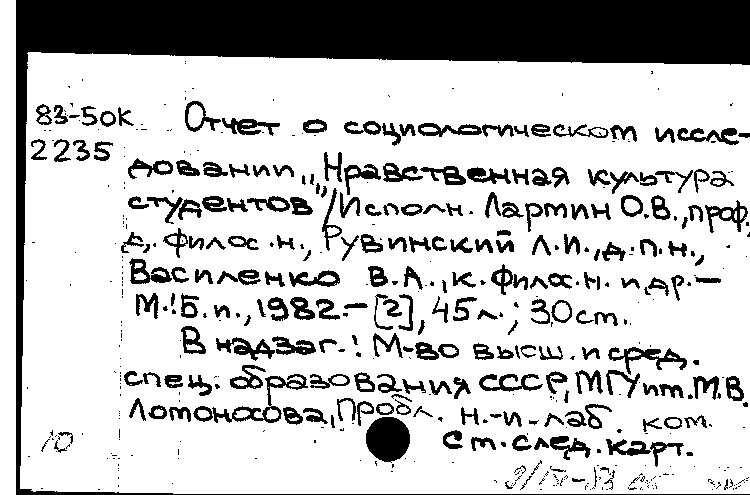 83-50К Отчет о социологическом иссле-
2235 довании „Нравственная культура
студентов"/Исполн. Лармин О.В., проф.,
д. филос.н., Рувинский Л.И., д.п.н.,
Василенко В.А., к.филос.н. и др.—
М.:Б.и., 1982.-[2], 45л.; 30см.
В надзаг.: М-во высш. и сред.
спец. образования СССР, МГУ им. М.В.
Ломоносова, Пробл. н.-и. лаб. ком.
10 См. след. карт.